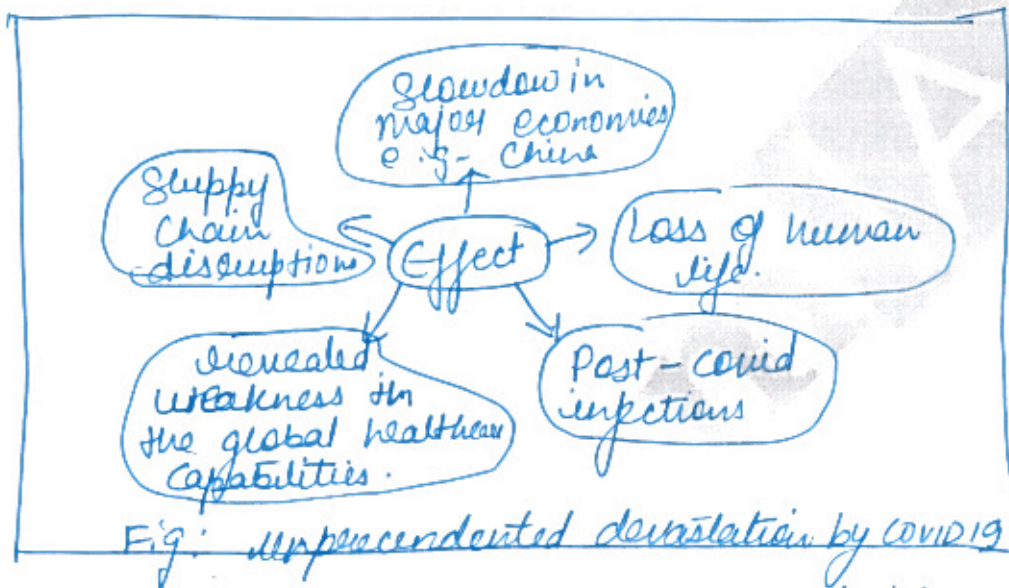 Slowdow in
major economies
e.g- China
Sluppy
Chain
disruptions
Effect
Loss of human
life.
revealed
weakness in
the global healthcare
capabilities.
Post-covid
infections
Fig: unprecendented devastation by COVID19